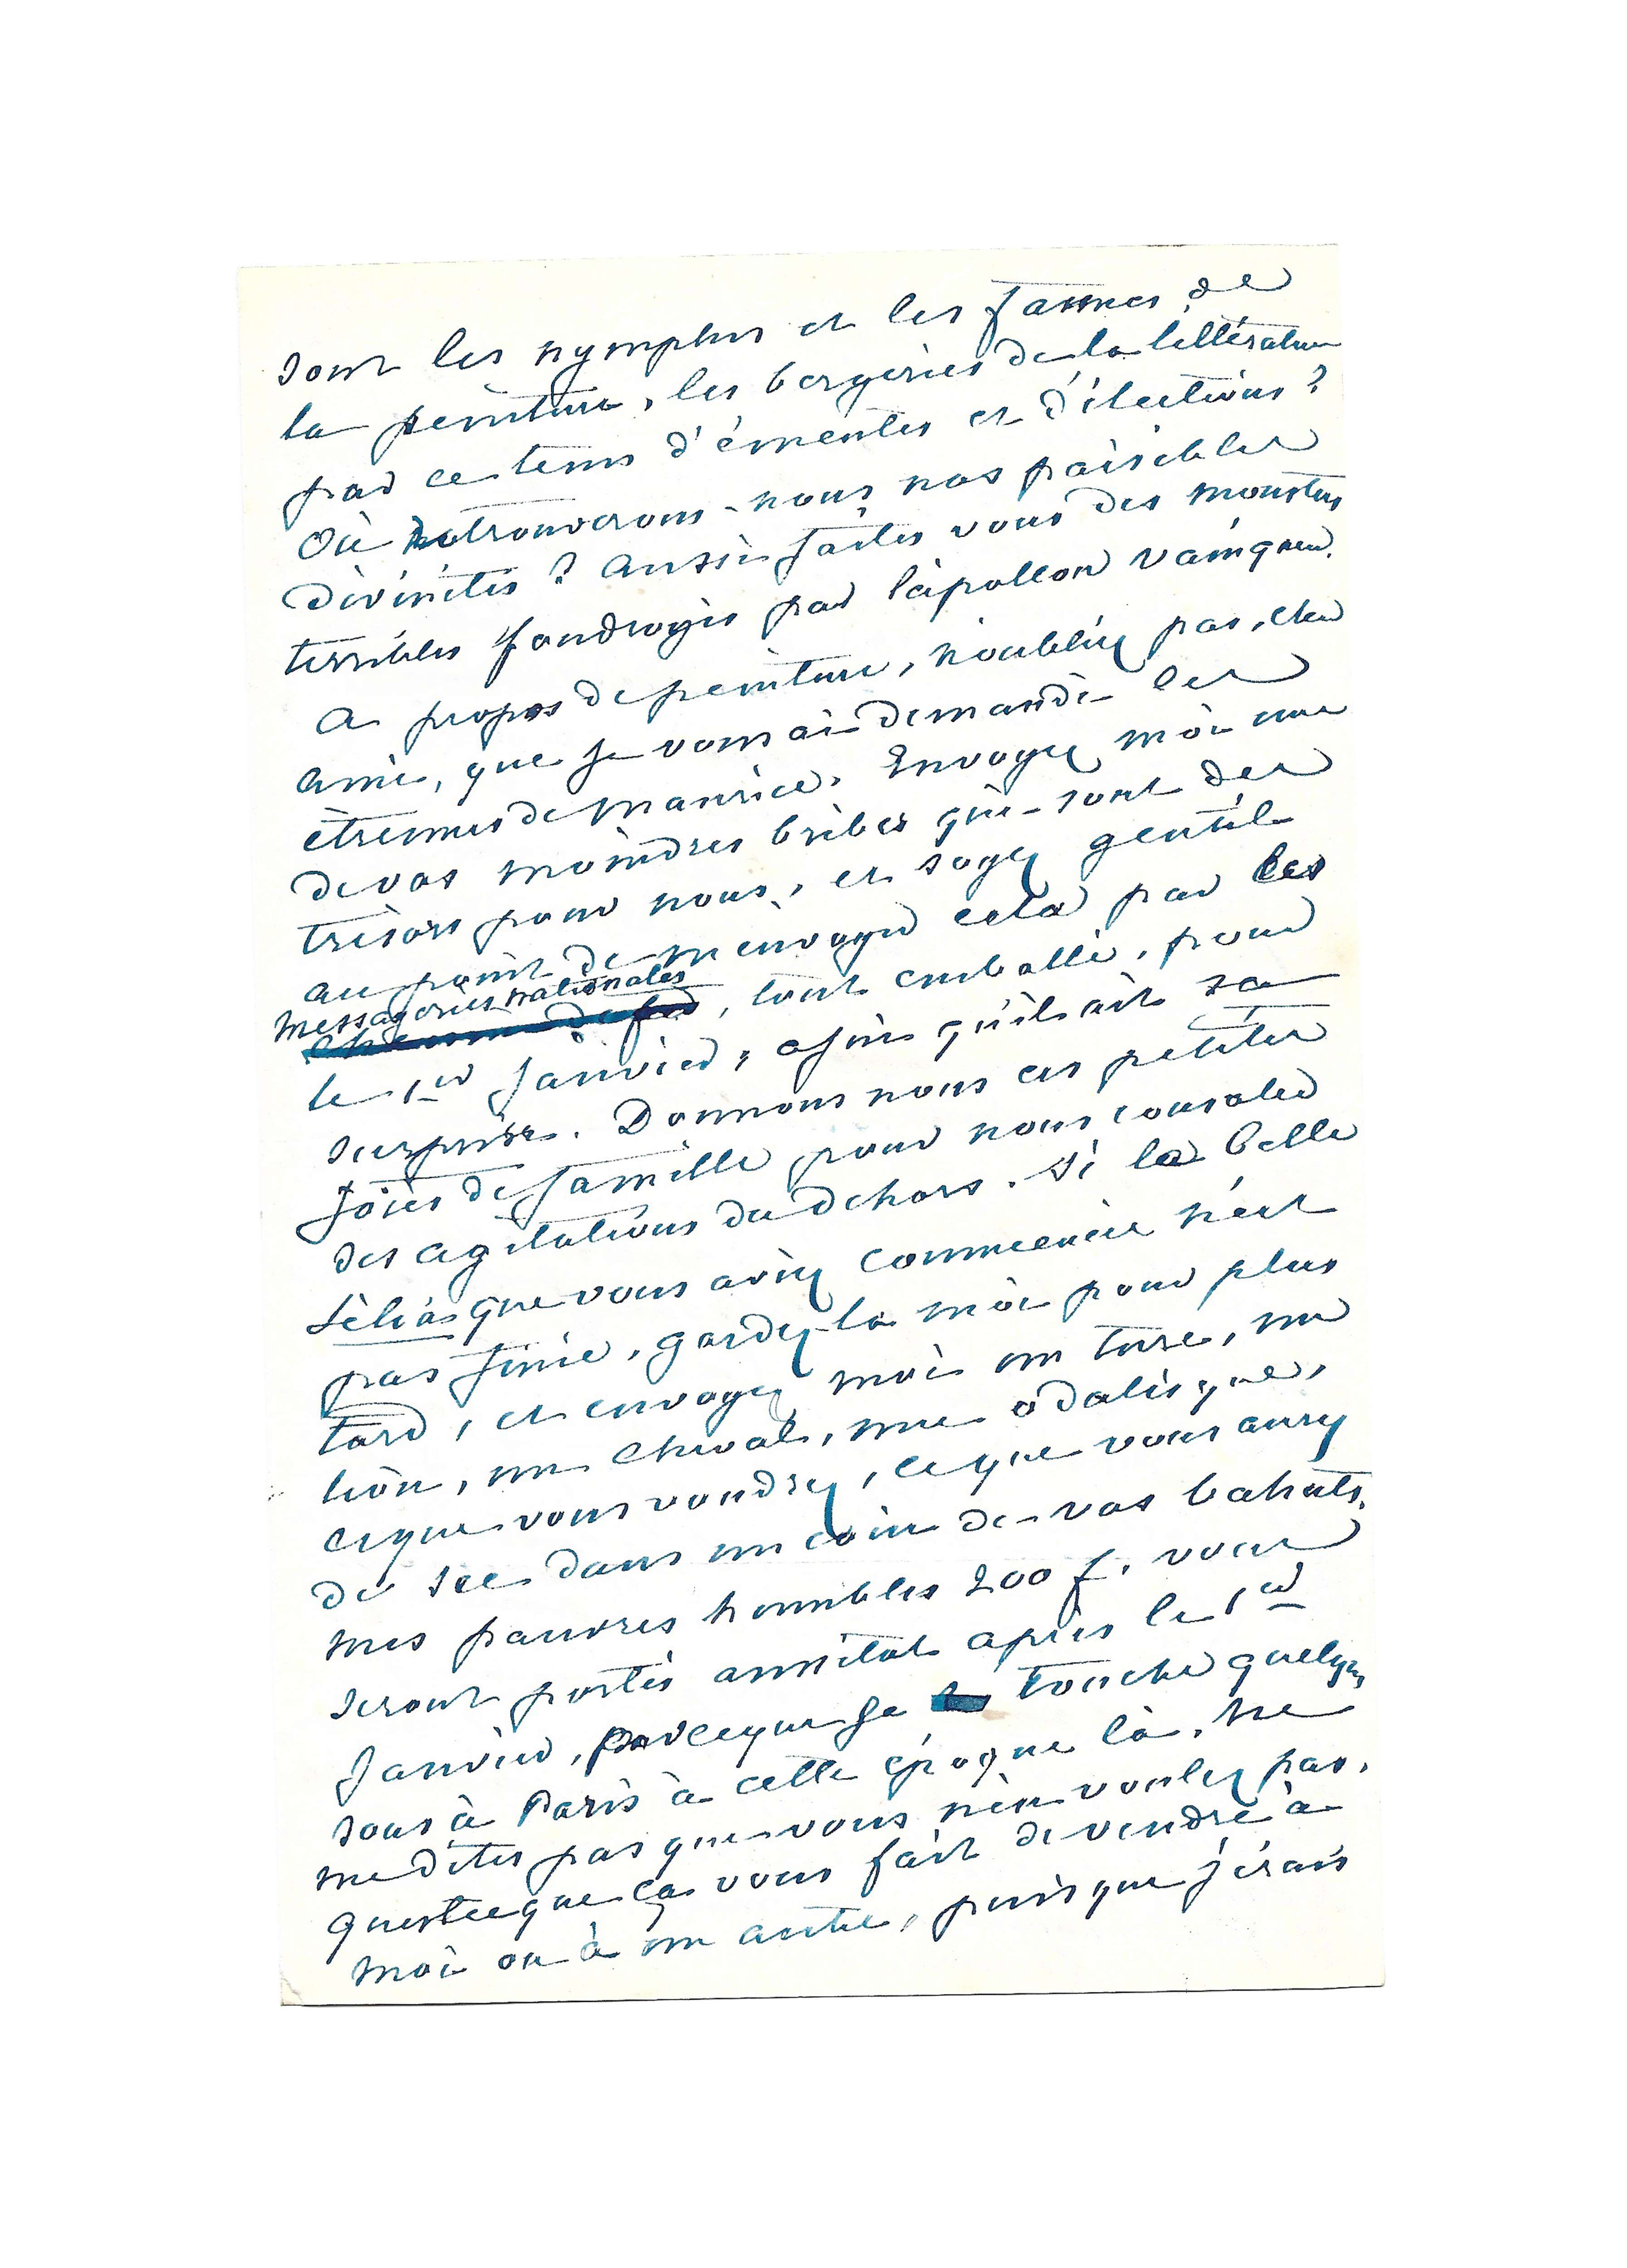 sont les nymphes et les faunes de
la peinture, les bergeries de la littérature
par ce tems d'émeutes et d'élections?
Où retrouverons-nous nos paisibles
divinités? Aussi faites vous des monstres
terribles foudroyés par l'apollon vainqueur.
A propos de peinture, n'oubliez pas, cher
ami, que je vous ai demandé les
étrennes de Maurice. Envoyez moi une
de vos moindres bribes qui sont des
trésors pour nous, et soyez gentil
au point de m'envoyer cela par les
messageries nationales
chemin de fer, tout emballé, pour
le 1er Janvier, afin qu'il ait sa
surprise. Donnons nous ces petites
joies de famille pour nous consoler
des agitations du dehors. Si la belle
Lélia que vous aviez commencée n'est
pas finie, gardez-la moi pour plus
tard, et envoyez moi un turc, un
lion, un cheval, une odalisque,
ce que vous voudrez, ce que vous aurez
de sec dans un coin de vos bahuts.
mes pauvres humbles 200 f. vous
seront portés aussitot après le 1er
Janvier, parceque je touche quelques
sous à Paris à cette époque là. Ne
me dites pas que vous n'en voulez pas.
Qu'est ce que ça vous fait de vendre à
moi ou à un autre, puisque j'irais